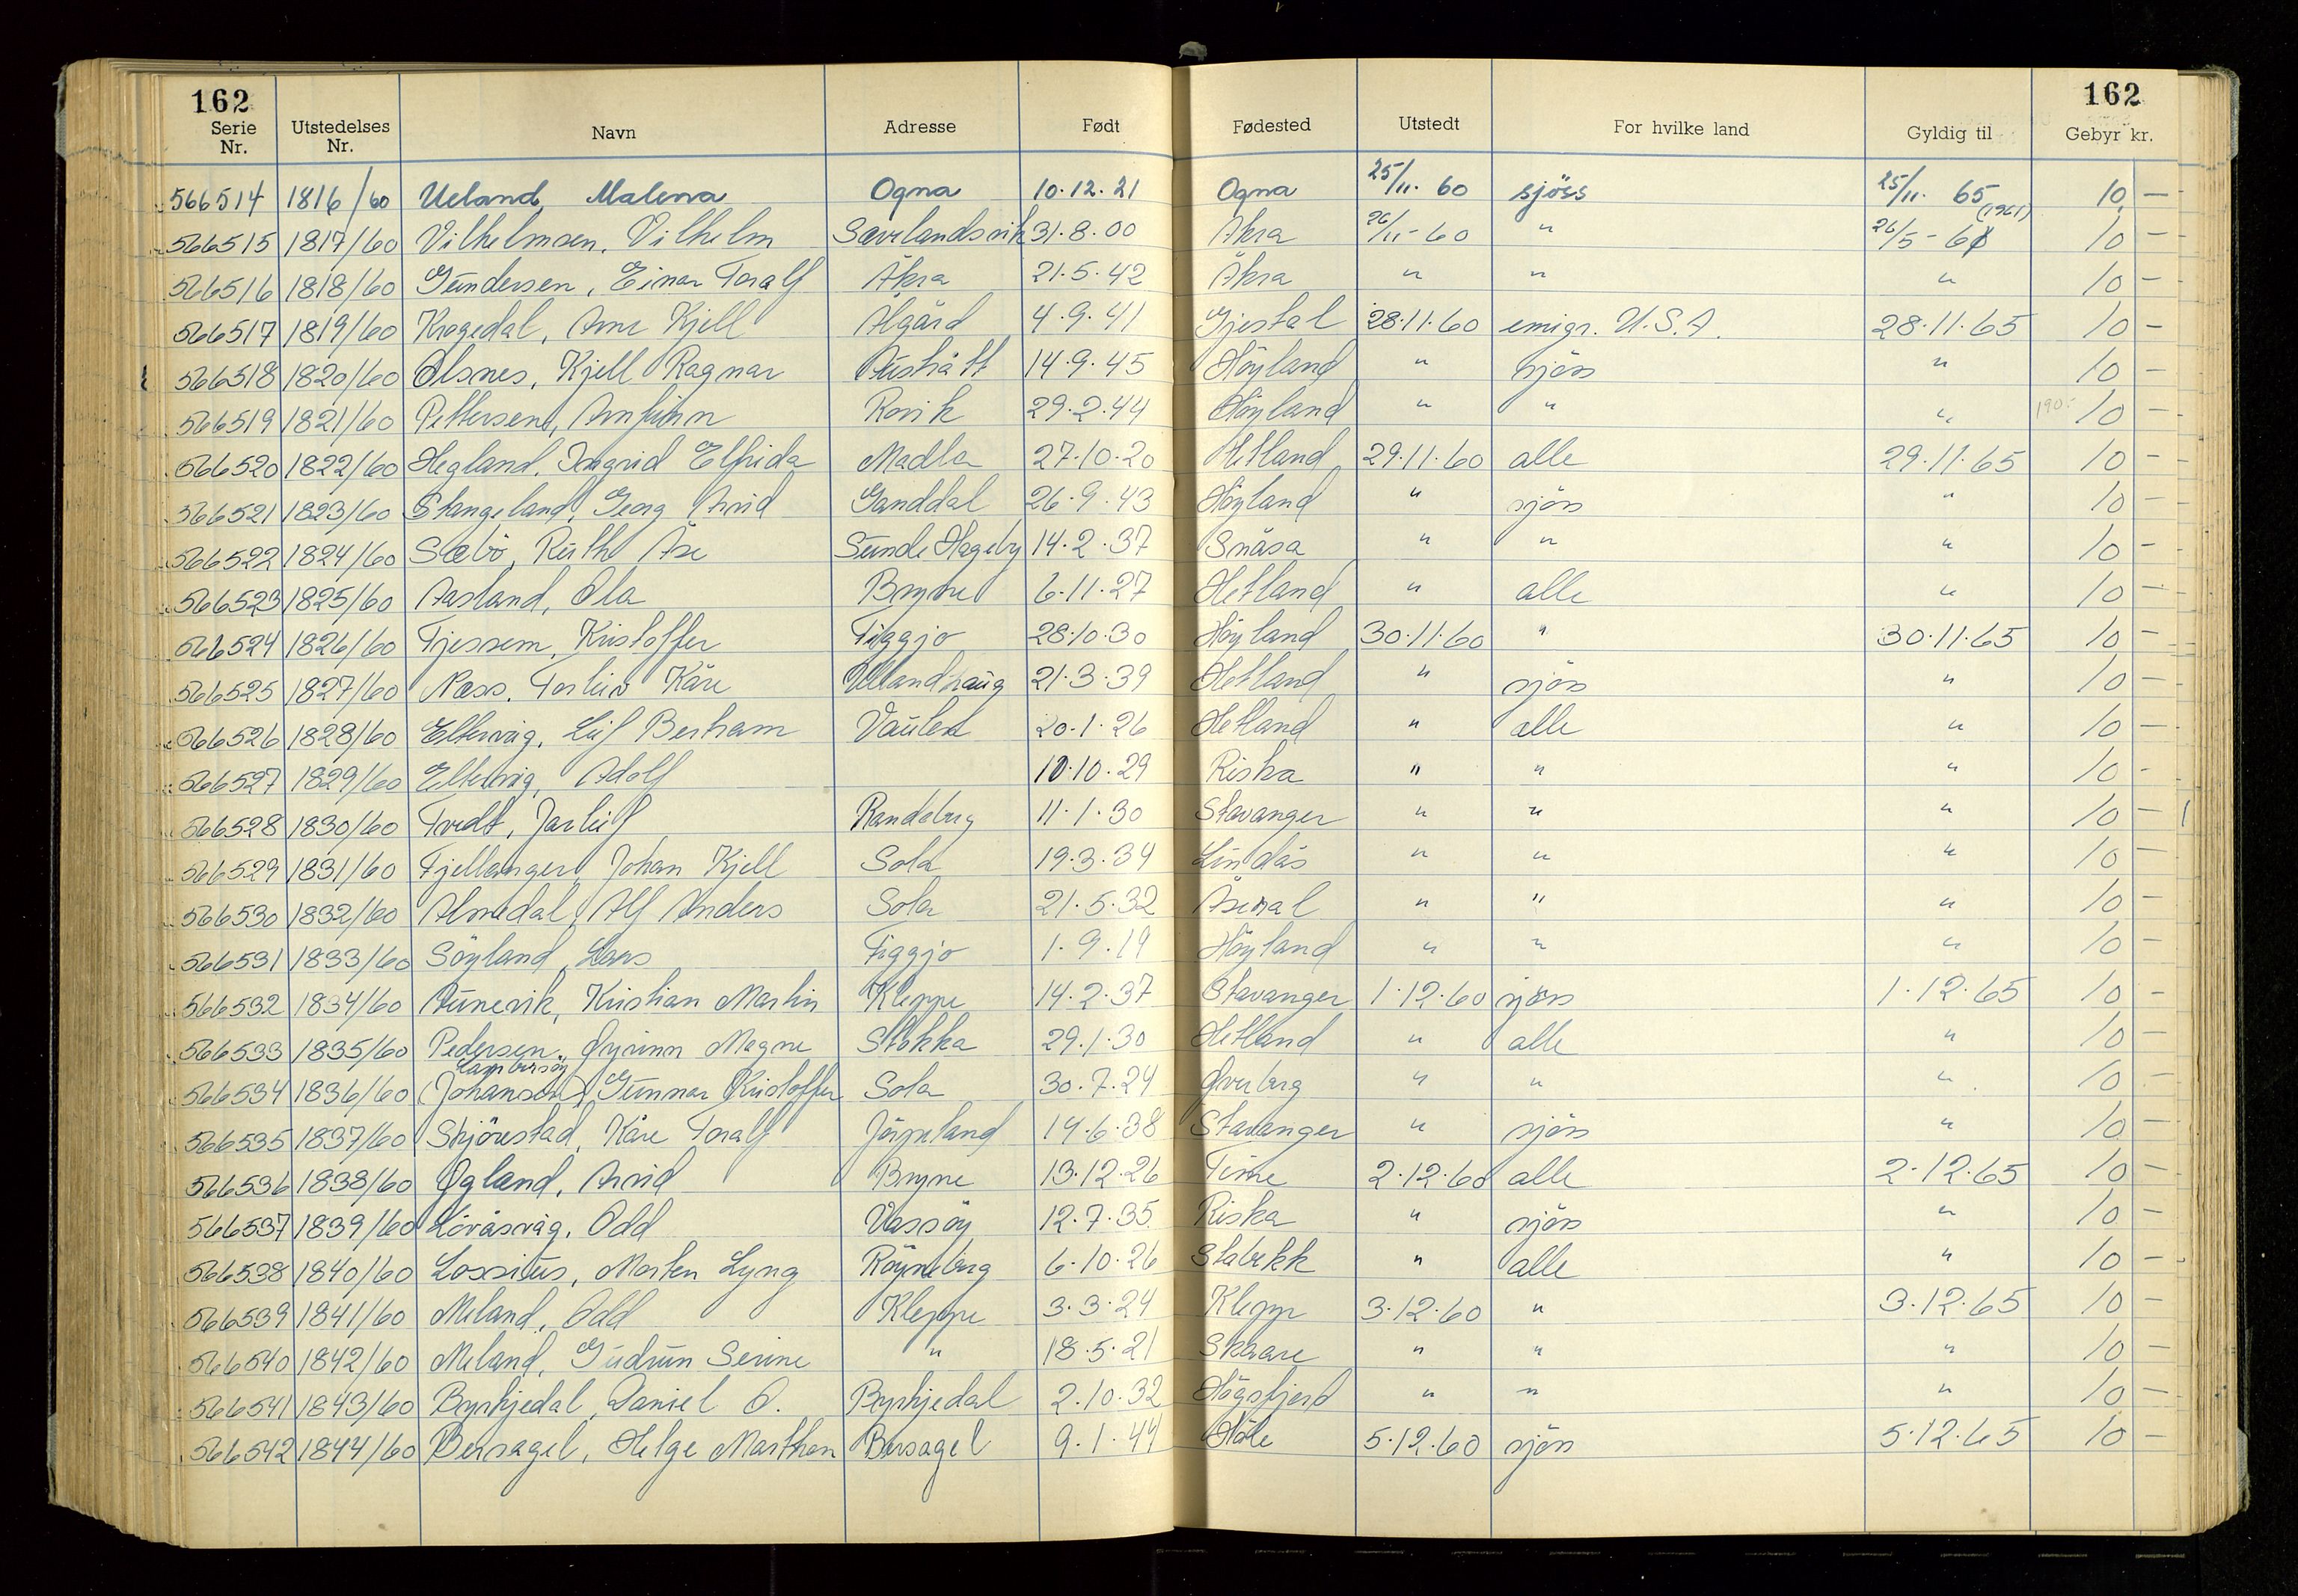 162 162
Serie Nr. Utstedelses Nr. Navn Adresse Født Fødested Utstedt For hvilke land Gyldig til Gebyr kr.
566514 1816/60 Ueland, Malena Ogna 10.12.21 Ogna 25/11. 60 sjöss 25/11. 65 10,—
566515 1817/60 Vilhelmsen, Vilhelm Sævelandsvik 31.8.00 Åkra 26/11-60 " 26/5-61 (1961) 10 —
566516 1818/60 Gundersen, Einar Toralf Åkra 21.5.42 Åkra " " " 10 —
566517 1819/60 Kragedal, Arne Kjell Ålgård 4.9.41 Gjestal 28.11.60 emigr. U.S.A. 28.11.65 10 —
566518 1820/60 Olsnes, Kjell Ragnar Austrått 14.9.45 Höyland " sjöss " 10 —
566519 1821/60 Pettersen, Arnfinn Rovik 29.2.44 Höyland " " " 190.- 10 —
566520 1822/60 Hegland, Ingrid Elfrida Madla 27.10.20 Hetland 29.11.60 alle 29.11.65 10 —
566521 1823/60 Stangeland, Georg Arvid Ganddal 26.9.43 Höyland " sjöss " 10 —
566522 1824/60 Sæbö, Ruth Åse Sunde Hageby 14.2.37 Snåsa " " " 10 —
566523 1825/60 Aasland, Ola Bryne 6.11.27 Hetland " alle " 10 —
566524 1826/60 Tjessem, Kristoffer Figgjo 28.10.30 Höyland 30.11.60 " 30.11.65 10 —
566525 1827/60 Næss, Torleiv Kåre Ullandhaug 21.3.39 Hetland " sjöss " 10 —
566526 1828/60 Eltervåg, Leif Bertram Vaulen 20.1.26 Hetland " alle " 10 —
566527 1829/60 Eltervåg, Adolf 10.10.29 Riska " " " 10 -
566528 1830/60 Tvedt, Jarleif Randaberg 11.1.30 Stavanger " " " 10 —
566529 1831/60 Fjellanger, Johan Kjell Sola 19.3.34 Lindås " " " 10 —
566530 1832/60 Almedal, Alf Anders Sola 21.5.32 Åseral " " " 10 —
566531 1833/60 Söyland, Lars Figgjo 1.9.19 Höyland " " " 10 —
566532 1834/60 Tunevik, Kristian Martin Kleppe 14.2.37 Stavanger 1.12.60 sjöss 1.12.65 10 —
566533 1835/60 Pedersen, Öyvinn Magne Stokka 29.1.30 Hetland " alle " 10 —
566534 1836/60 (Johansen), Gunnar Kristoffer Sola 30.7.24 Överberg " " " 10 —
566535 1837/60 Skjörestad, Kåre Toralf Jörpeland 14.6.38 Stavanger " sjöss " 10 —
566536 1838/60 Ögland, Arvid Bryne 13.12.26 Time 2.12.60 alle 2.12.65 10 —
566537 1839/60 Lövåsvåg, Odd Vassöy 12.7.35 Riska " sjöss " 10 —
566538 1840/60 Lossius, Morten Lyng Röyneberg 6.10.26 Stabekk " alle " 10 —
566539 1841/60 Meland, Odd Kleppe 3.3.24 Klepp 3.12.60 " 3.12.65 10 —
566540 1842/60 Meland, Gudrun Serine " 18.5.21 Skaare " " " 10 —
566541 1843/60 Byrkjedal, Daniel O. Byrkjedal 2.10.32 Högsfjord " " " 10 —
566542 1844/60 Bersagel, Helge Marthon Bersagel 9.1.44 Höle 5.12.60 sjöss 5.12.65 10 —